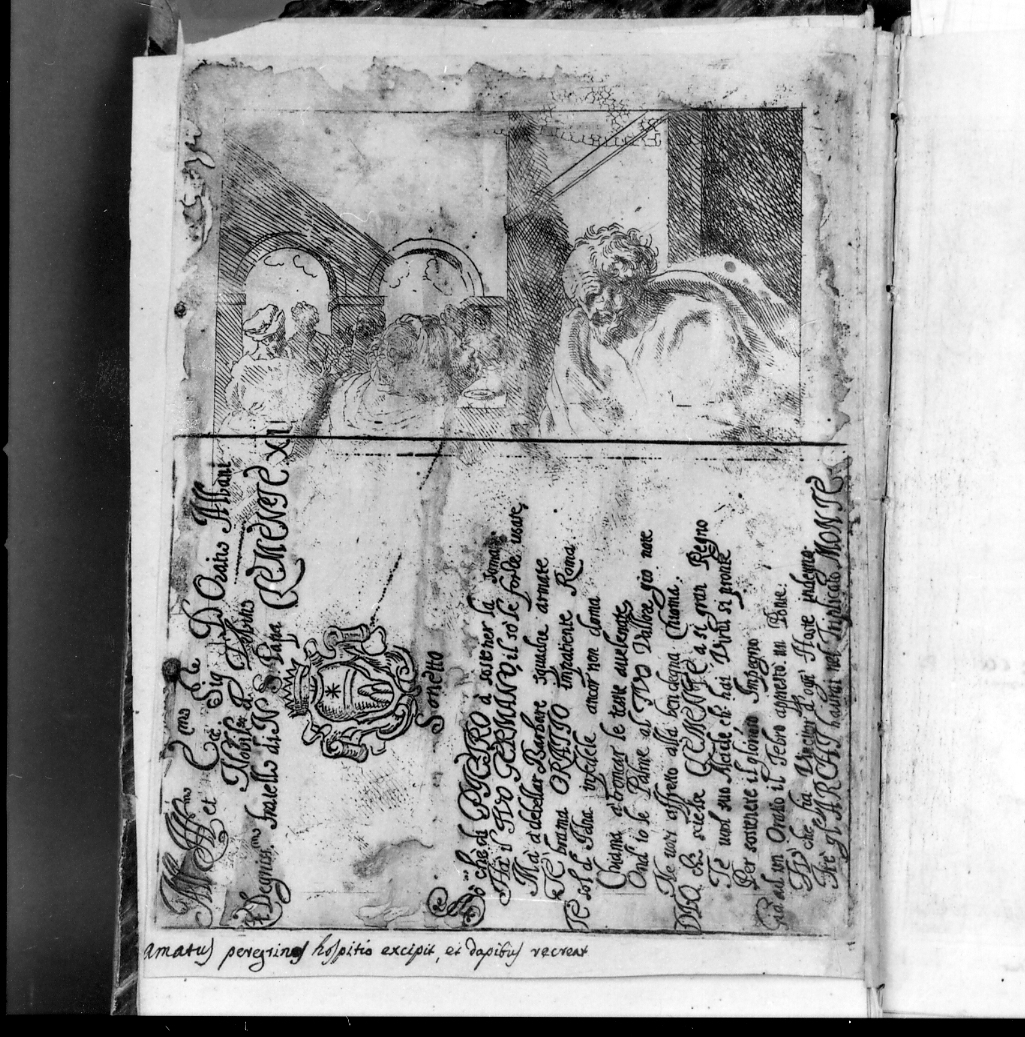 All Ill.mo et Ecc.mo Sig. D. Oratio Albani
Nobilis.
Degnis.mo fratello di N. S. Papa CLEMENTE XI
Sonetto
Sò che di PIETRO à sostener la Soma
Hà il TUO GERMANO, il so le forze usate,
Mà à debellar Barbare squadre armate
TE brama ORATIO impatiente Roma
TE sol d' Idra infedele ancor non doma
à troncar le teste avvelenate
Ond' io le Palme al TUO Valore gia nate
Ne vuoi affretto alla ben degna Chioma.
DIO CHE scielse CLEMENTE a si gran Regno
TE vuol suo Alcide che hai Virtù si pronte
Per sostenere il glorioso Impegno
Già ad un Oratio il Tebro appresto un Ponte.
TU che ha d'ogn' Hoste indegno
Tre gl'ARCHI havrai nel Triplicato MONTE
amatus peregrinos hospitio excipit, et dapibus recreat